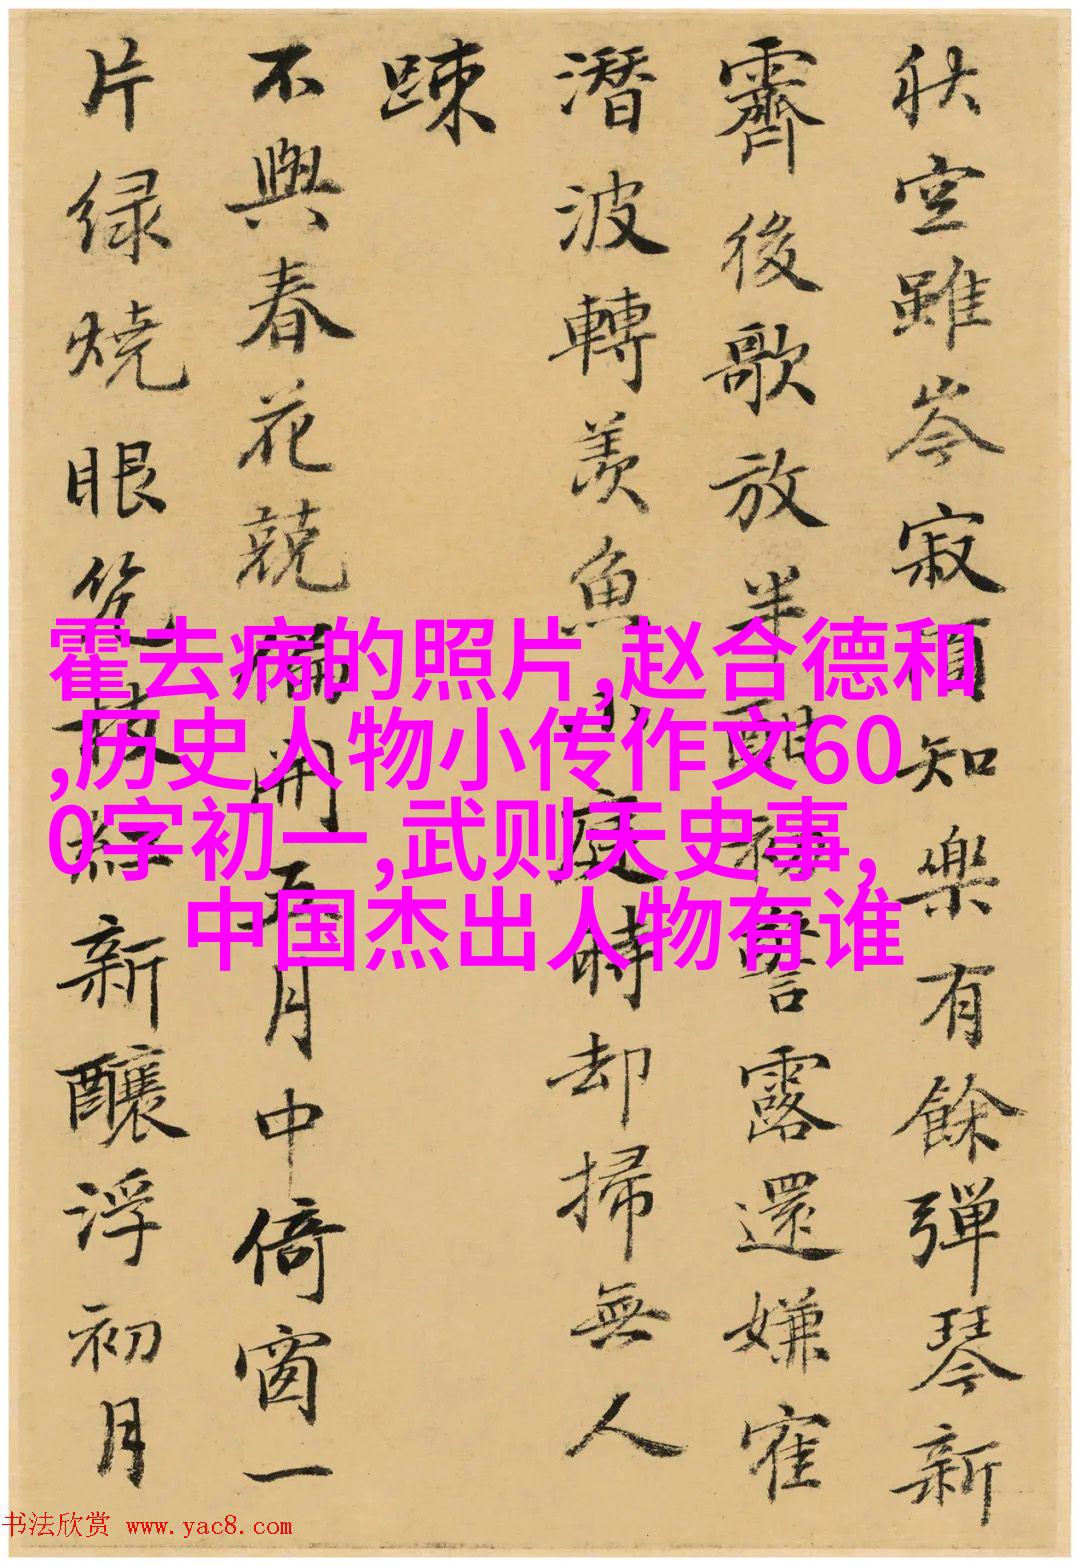 秋空雖岑寂自知樂有餘彈琴新
霽後歌放半酣初警露還嫌寉
潛波轉羨魚小庭時却掃無人
踈
不與春花競偏開五月中倚窗一
片緑燒眼枝紅新釀浮初月
霍去病的照片,赵合德和
,历史人物小传作文60
0字初一,武则天史事,
中国杰出人物有谁
书法欣赏 www.yac8.com